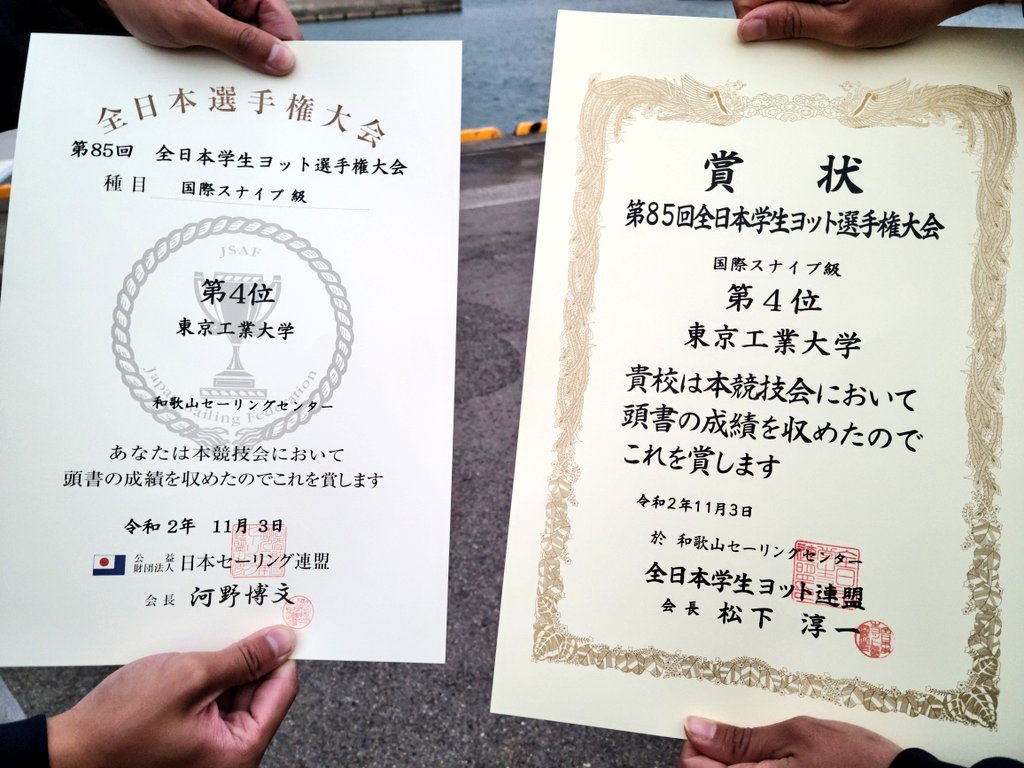 全日本選手権大会
第85回 全日本学生ヨット選手権大会
種目 国際スナイプ級
JSAF
第4位
東京工業大学
和歌山セーリングセンター
Japan Sailing Federation
あなたは本競技会において
頭書の成績を収めたのでこれを賞します
令和2年 11月3日
公益
財団法人 日本セーリング連盟
会長 河野博文
賞状
第85回全日本学生ヨット選手権大会
国際スナイプ級
第4位
東京工業大学
貴校は本競技会において
頭書の成績を収めたので
これを賞します
令和2年11月3日
於 和歌山セーリングセンター
全日本学生ヨット連盟
会長 松下 淳一